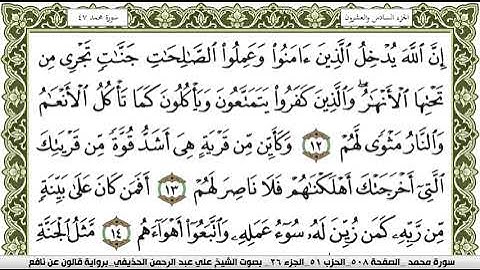 سورة محمد ٤٧
الجزء السادس والعشرون
إِنَّ ٱللَّهَ يُدْخِلُ ٱلَّذِينَ ءَامَنُوا۟ وَعَمِلُوا۟ ٱلصَّٰلِحَٰتِ جَنَّٰتٍ تَجْرِى مِن
تَحْتِهَا ٱلْأَنْهَٰرُ وَٱلَّذِينَ كَفَرُوا۟ يَتَمَتَّعُونَ وَيَأْكُلُونَ كَمَا تَأْكُلُ ٱلْأَنْعَٰمُ
وَٱلنَّارُ مَثْوًى لَّهُمْ ١٢ وَكَأَيِّن مِّن قَرْيَةٍ هِىَ أَشَدُّ قُوَّةً مِّن قَرْيَتِكَ
ٱلَّتِى أَخْرَجَتْكَ أَهْلَكْنَٰهُمْ فَلَا نَاصِرَ لَهُمْ ١٣ أَفَمَن كَانَ عَلَىٰ بَيِّنَةٍ
مِّن رَّبِّهِۦ كَمَن زُيِّنَ لَهُۥ سُوٓءُ عَمَلِهِۦ وَٱتَّبَعُوٓا۟ أَهْوَآءَهُم ١٤ مَّثَلُ ٱلْجَنَّةِ
سورة محمد_ الصفحة ٥٠٨_ الحزب ٥١_ الجزء ٢٦_ بصوت الشيخ علي عبد الرحمن الحذيفي_ برواية قالون عن نافع